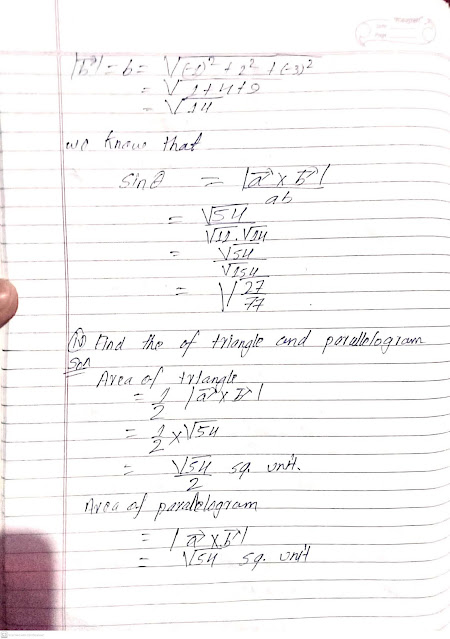 |b⃗| = b = √(-1)² + 2² + (-3)²
= √1+4+9
= √14
we know that
sinθ = |a⃗ x b⃗|
ab
= √54
√11 . √14
= √54
√154
= √27
77
Find the of triangle and parallelogram
Soln
Area of triangle
= 1/2 |a⃗ x b⃗|
= 1/2 x √54
= √54 sq. unit.
2
Area of parallelogram
= |a⃗ x b⃗|
= √54 sq. unit